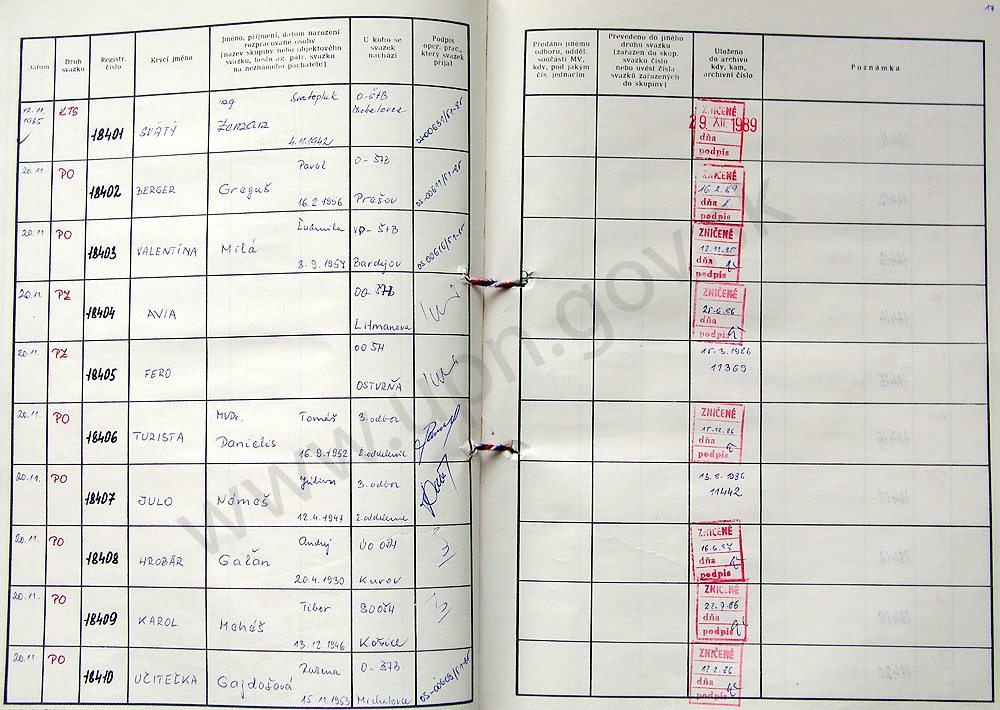 17
Datum
Druh svazku
Registr. číslo
Krycí jméno
Jméno, příjmení, datum narození
rozpracované osoby
(název skupiny nebo objektového
svazku, heslo až. pátr. svazku
na neznámého pachatele)
U koho se
svazek
nachází
Podpis
oper. prac.,
který svazek
přijal
Předáno jinému
odboru, odděl.
součásti MV,
kdy, pod jakým
čís. jednacím
Převedeno do jiného
druhu svazku
(zařazen do skup.
svazku číslo
nebo uvést čísla
svazků zařazených
do skupiny)
Uloženo
do archivu
kdy, kam,
archivní číslo
Poznámka
12.11. 1985 KTS 18401 SVÄTÝ Ing Svätopluk 4.11.1942 O-ŠTB Michalovce
ZNIČENÉ
29. XII. 1989
dňa
podpis
20.11 PO 18402 BERGER Pavol Greguš 16.2.1956 O-ŠTB Prešov
ZNIČENÉ
16.2.89
dňa
podpis
20.11. PO 18403 VALENTÍNA Ľudmila Milá 8.9.1957 VP-ŠTB Bardejov
ZNIČENÉ
12.12.85
dňa
podpis
20.11. PZ 18404 AVIA OO ŠTB Litmanová
ZNIČENÉ
25.6.86
dňa
podpis
20.11. PZ 18405 FERO OO ŠTB OSTURŇA
15.3.1986
11369
20.11. PO 18406 TURISTA MVDr. Tomáš Danielis 16.9.1952 3.odbor 2.oddelenie
ZNIČENÉ
15.12.86
dňa
podpis
20.11. PO 18407 JULO Július Námeš 12.4.1947 3.odbor 2.oddelenie
13.8.1986
11442
20.11. PO 18408 HROBÁR Andrej Galan 20.4.1930 Kurov
ZNIČENÉ
16.6.87
dňa
podpis
20.11. PO 18409 KAROL Tibor Meheš 13.12.1946 Košice
ZNIČENÉ
22.7.86
dňa
podpis
20.11 PO 18410 UČITEĽKA Ružena Gajdošová 15.11.1953 O-ŠTB Michalovce
ZNIČENÉ
12.2.86
dňa
podpis
www.upn.gov.sk